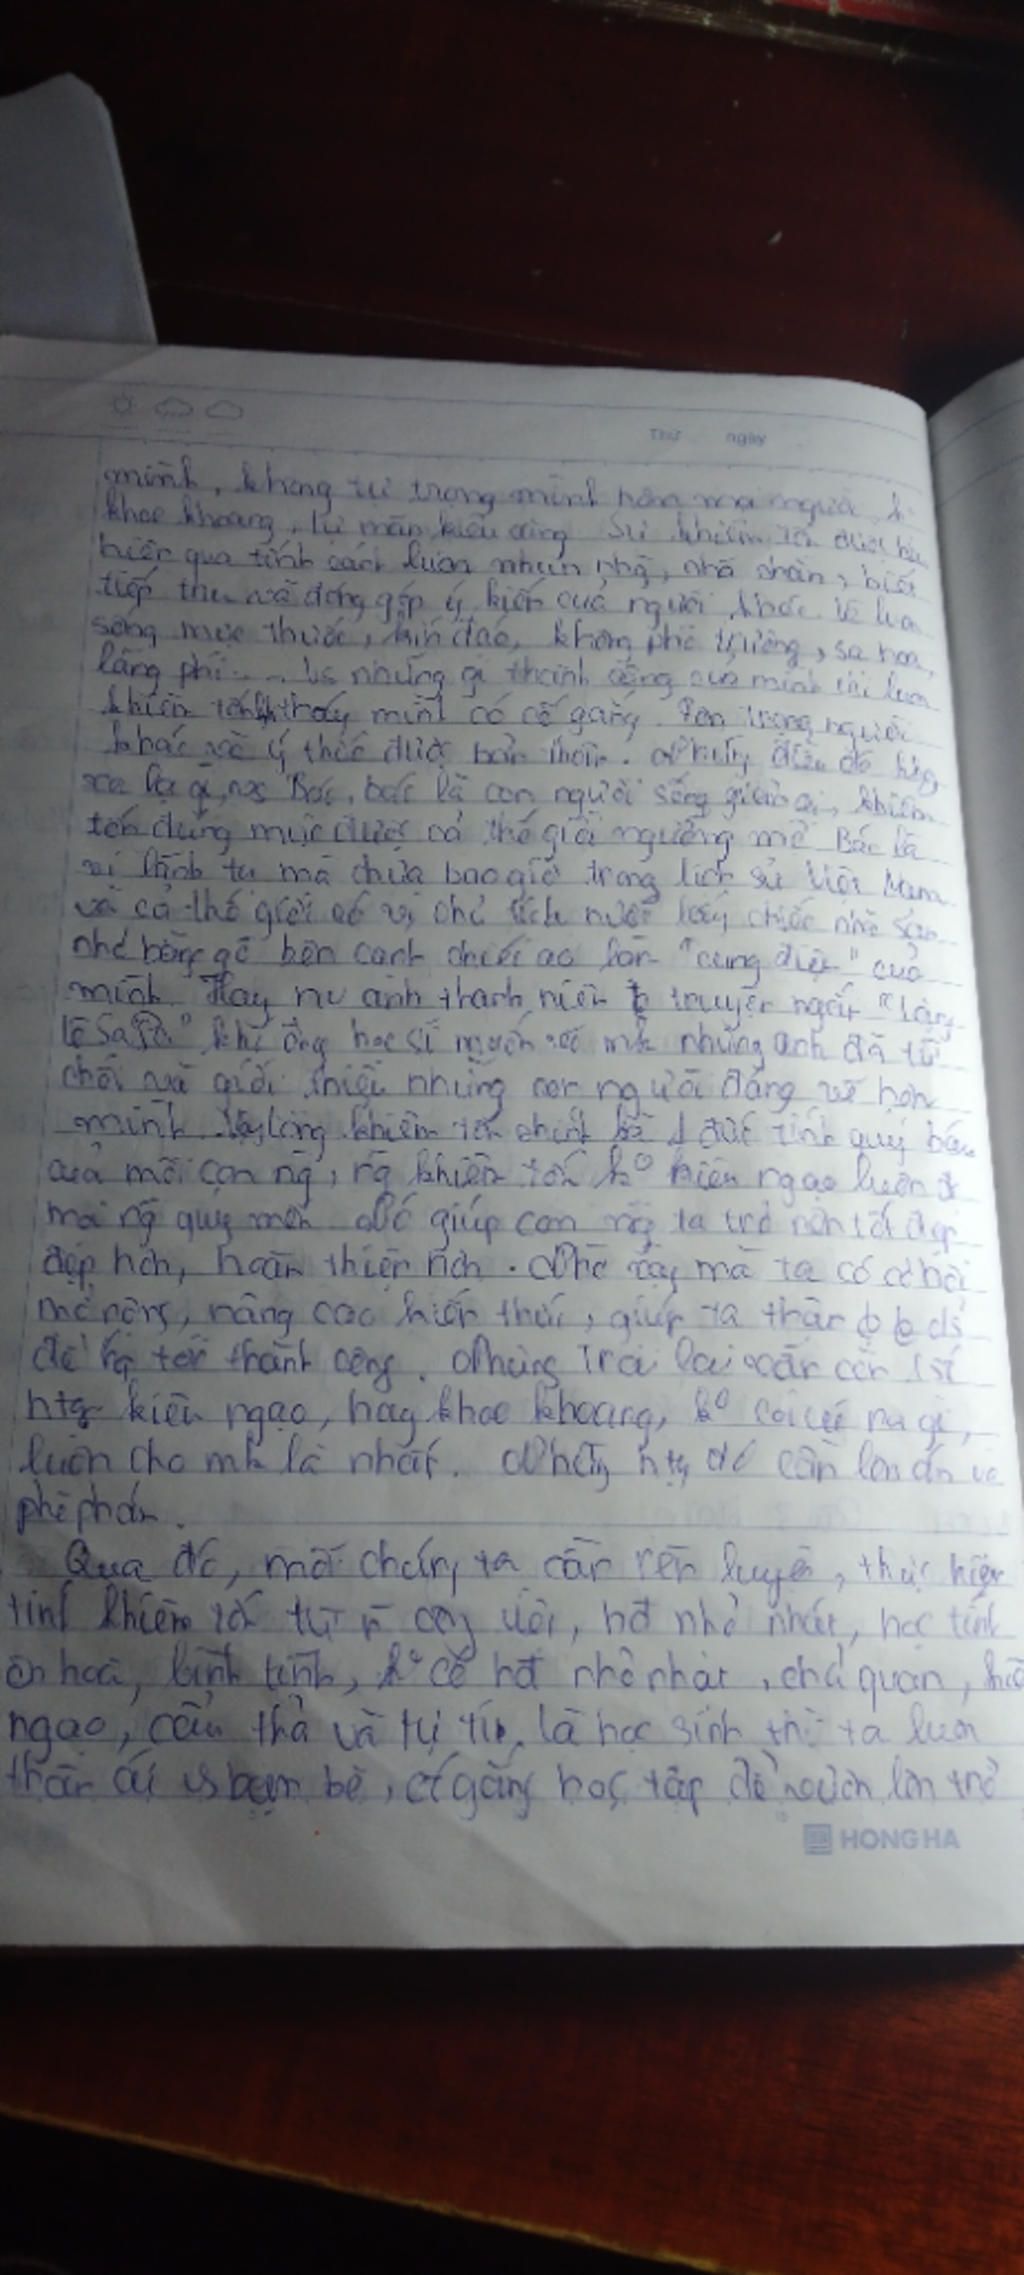 Thứ ngày
mình, không tự trọng mình hơn mọi người, k
khoe khoang, tự mãn, kiêu căng. Sự khiêm tốn được
hiện qua tính cách luôn nhún nhã, chân, biết
tiếp thu và đóng góp ý kiến của người khác. luôn
sống mực thước, kín đáo, không phô trương, sa hoa,
lãng phí... Vs những gì thành công của mình thì luôn
khiêm tốn thấy mình có cố gắng. Tôn trọng người
khác và ý thức được bản thân. Những điều đó
xa lạ gì, vs Bác, bác là con người sống giản dị, khiêm
tốn đúng mực được cả thế giới ngưỡng mộ Bác là
vị lãnh tụ mà chưa bao giờ trong lịch sử Việt Nam
và cả thế giới có vị chủ tịch nước lấy chiếc nhà sàn
nhỏ bằng gỗ bên cạnh chiếc ao làm "cung điện" của
mình. Hay nv anh thanh niên truyện ngắn "Lặng
lẽ Sa Pa" khi ông hoạ sĩ muốn vẽ mk nhưng anh đã từ
chối và giới thiệu những con người đáng vẽ hơn
mình. Vậy lòng khiêm tốn chính là 1 đức tính quý báu
của mỗi con ng, ng khiêm tốn kº kiêu ngạo luôn đc
mọi ng quý mến. Nó giúp con ng ta trở nên tốt đẹp
đẹp hơn, hoàn thiện hơn. Nhờ vậy mà ta có cơ hội
mở rộng, nâng cao kiến thức, giúp ta
để tới thành công. Nhưng Trái lại vẫn còn 1 số
kiêu ngạo, hay khoe khoang, kº coi ai ra gì,
luôn cho mk là nhất. Những đó cần lên án và
phê phán.
Qua đó, mỗi chúng ta cần rèn luyện, thực hiện
tính khiêm tốn từ n công việc, hđ nhỏ nhất, học tính
ôn hoà, bình tĩnh, kº có hđ nhỏ nhặt, chủ quan,
ngạo, cẩu thả và tự ti. Là học sinh thì ta luôn
thân ái vs bạn bè, cố gắng học tập để lớn trở
HONG HA